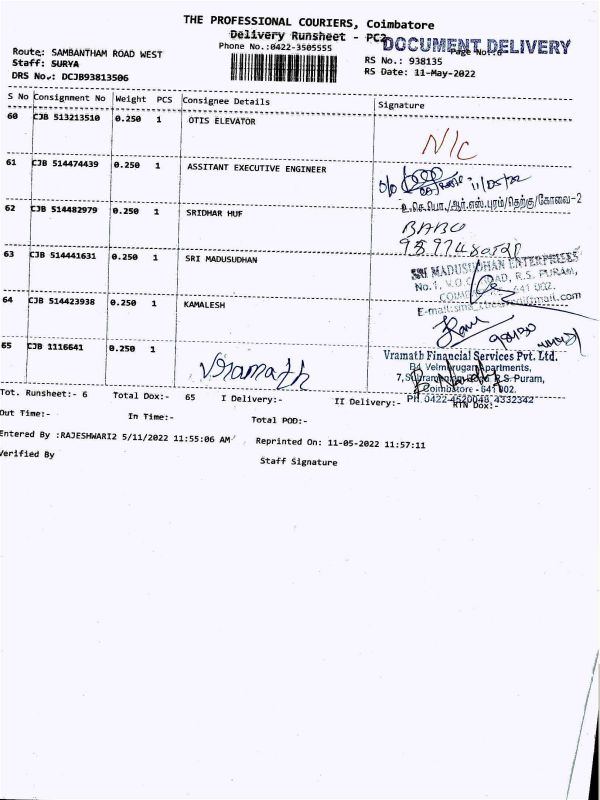 THE PROFESSIONAL COURIERS, Coimbatore
Delivery Runsheet - PC2
DOCUMENT DELIVERY
Phone No.:0422-3505555
Page No.:6
Route: SAMBANTHAM ROAD WEST
Staff: SURYA
DRS No.: DCJB93813506
RS No.: 938135
RS Date: 11-May-2022
S No Consignment No Weight PCS Consignee Details Signature
60 CJB 513213510 0.250 1 OTIS ELEVATOR
N/C
61 CJB 514474439 0.250 1 ASSITANT EXECUTIVE ENGINEER
11/05/22
உ.செ.பொ./ஆர்.எஸ்.புரம்/தெற்கு/கோவை-2
62 CJB 514482979 0.250 1 SRIDHAR HUF
BABU
63 CJB 514441631 0.250 1 SRI MADUSUDHAN
SRI MADUSUDHAN ENTERPRISES
No.1, V.O.C ROAD, R.S. PURAM,
641 002.
64 CJB 514423938 0.250 1 KAMALESH
65 CJB 1116641 0.250 1
Vramath
Vramath Financial Services Pvt. Ltd.
B4 Velmurugan Apartments,
R.S. Puram,
Coimbatore - 641 002.
PH. 0422-4520048, 4332342
Tot. Runsheet:- 6 Total Dox:- 65 I Delivery:- II Delivery:- RTN Dox:-
Out Time:- In Time:- Total POD:-
Entered By :RAJESHWARI2 5/11/2022 11:55:06 AM Reprinted On: 11-05-2022 11:57:11
Verified By Staff Signature